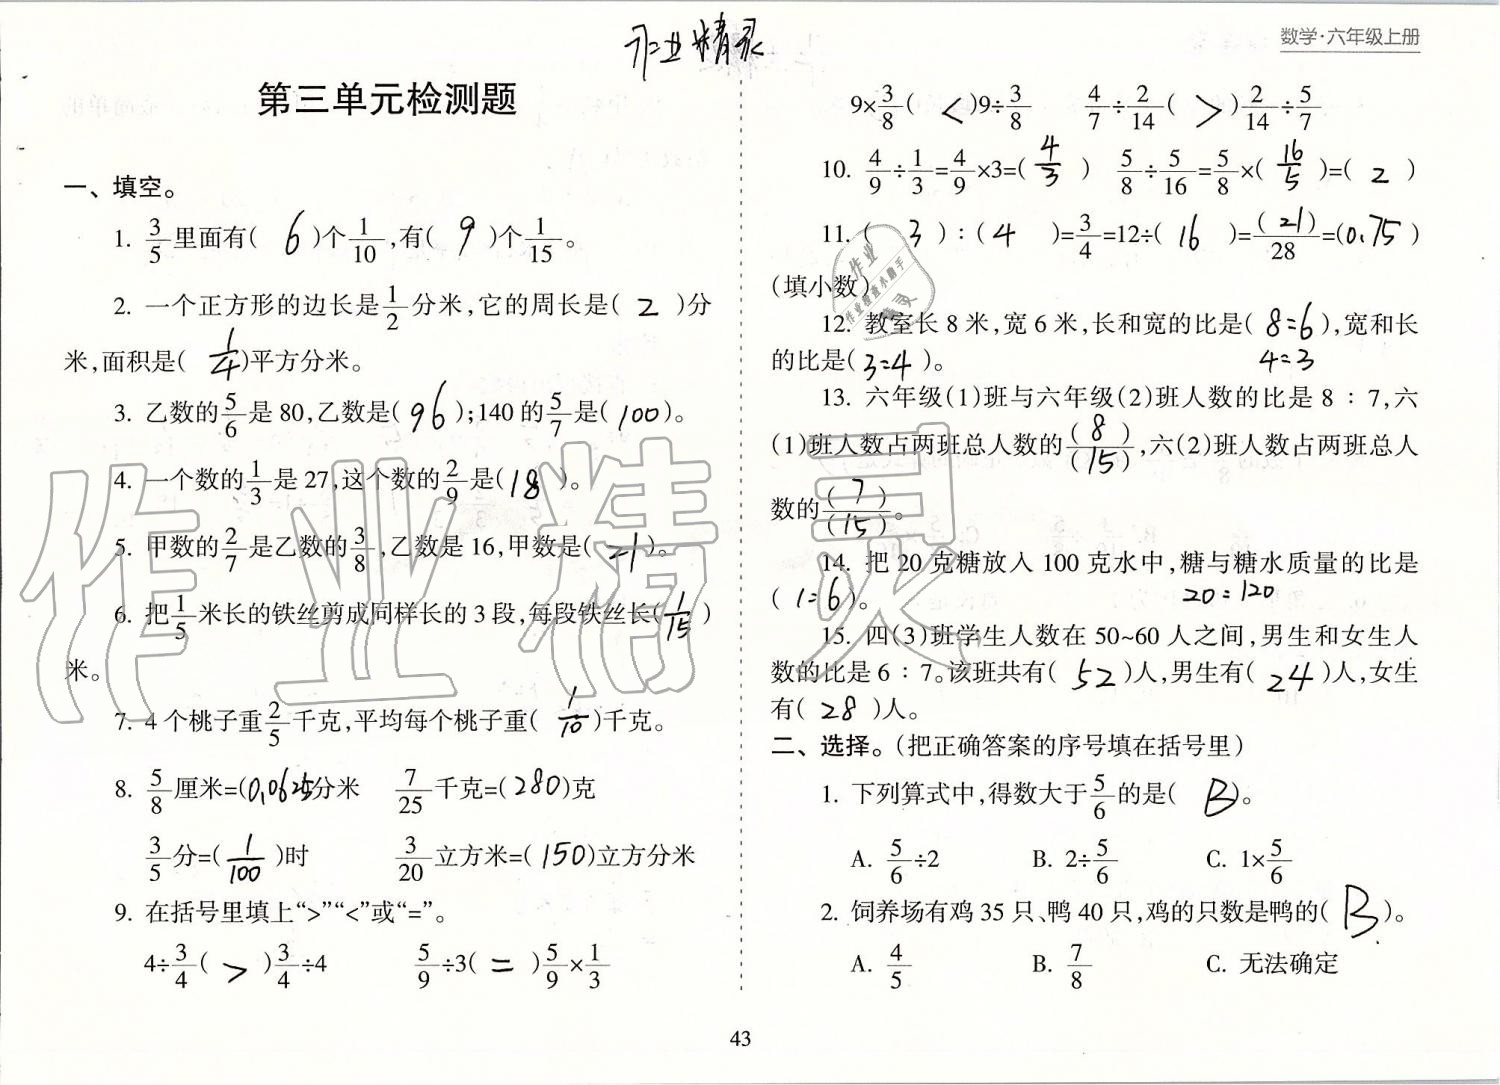 作业精灵
数学·六年级上册
第三单元检测题
一、填空。
1. 3/5里面有( 6 )个1/10,有( 9 )个1/15。
2. 一个正方形的边长是1/2分米,它的周长是( 2 )分
米,面积是( 1/4 )平方分米。
3. 乙数的5/6是80,乙数是( 96 );140的5/7是( 100 )。
4. 一个数的1/3是27,这个数的2/9是( 18 )。
5. 甲数的2/7是乙数的3/8,乙数是16,甲数是( 21 )。
6. 把1/5米长的铁丝剪成同样长的3段,每段铁丝长( 1/15 )
米。
7. 4个桃子重2/5千克,平均每个桃子重( 1/10 )千克。
8. 5/8厘米=( 0.0625 )分米 7/25千克=( 280 )克
3/5分=( 1/100 )时 3/20立方米=( 150 )立方分米
9. 在括号里填上“>”“<”或“=”。
4÷3/4( > )3/4÷4 5/9÷3( = )5/9×1/3
9×3/8( < )9÷3/8 4/7÷2/14( > )2/14÷5/7
10. 4/9÷1/3=4/9×3=( 4/3 ) 5/8÷5/16=5/8×( 16/5 )=( 2 )
11. ( 3 ):( 4 )=3/4=12÷( 16 )=( 21 )/28=( 0.75 )
(填小数)
12. 教室长8米,宽6米,长和宽的比是( 8=6 ),宽和长
4=3
的比是( 3=4 )。
13. 六年级(1)班与六年级(2)班人数的比是8:7,六
(1)班人数占两班总人数的( 8 )/( 15 ),六(2)班人数占两班总人
数的( 7 )/( 15 )。
14. 把20克糖放入100克水中,糖与糖水质量的比是
( 1=6 )。 20=120
15. 四(3)班学生人数在50~60人之间,男生和女生人
数的比是6:7。该班共有( 52 )人,男生有( 24 )人,女生
有( 28 )人。
二、选择。(把正确答案的序号填在括号里)
1. 下列算式中,得数大于5/6的是( B )。
A. 5/6÷2 B. 2÷5/6 C. 1×5/6
2. 饲养场有鸡35只、鸭40只,鸡的只数是鸭的( B )。
A. 4/5 B. 7/8 C. 无法确定
43
作业精灵